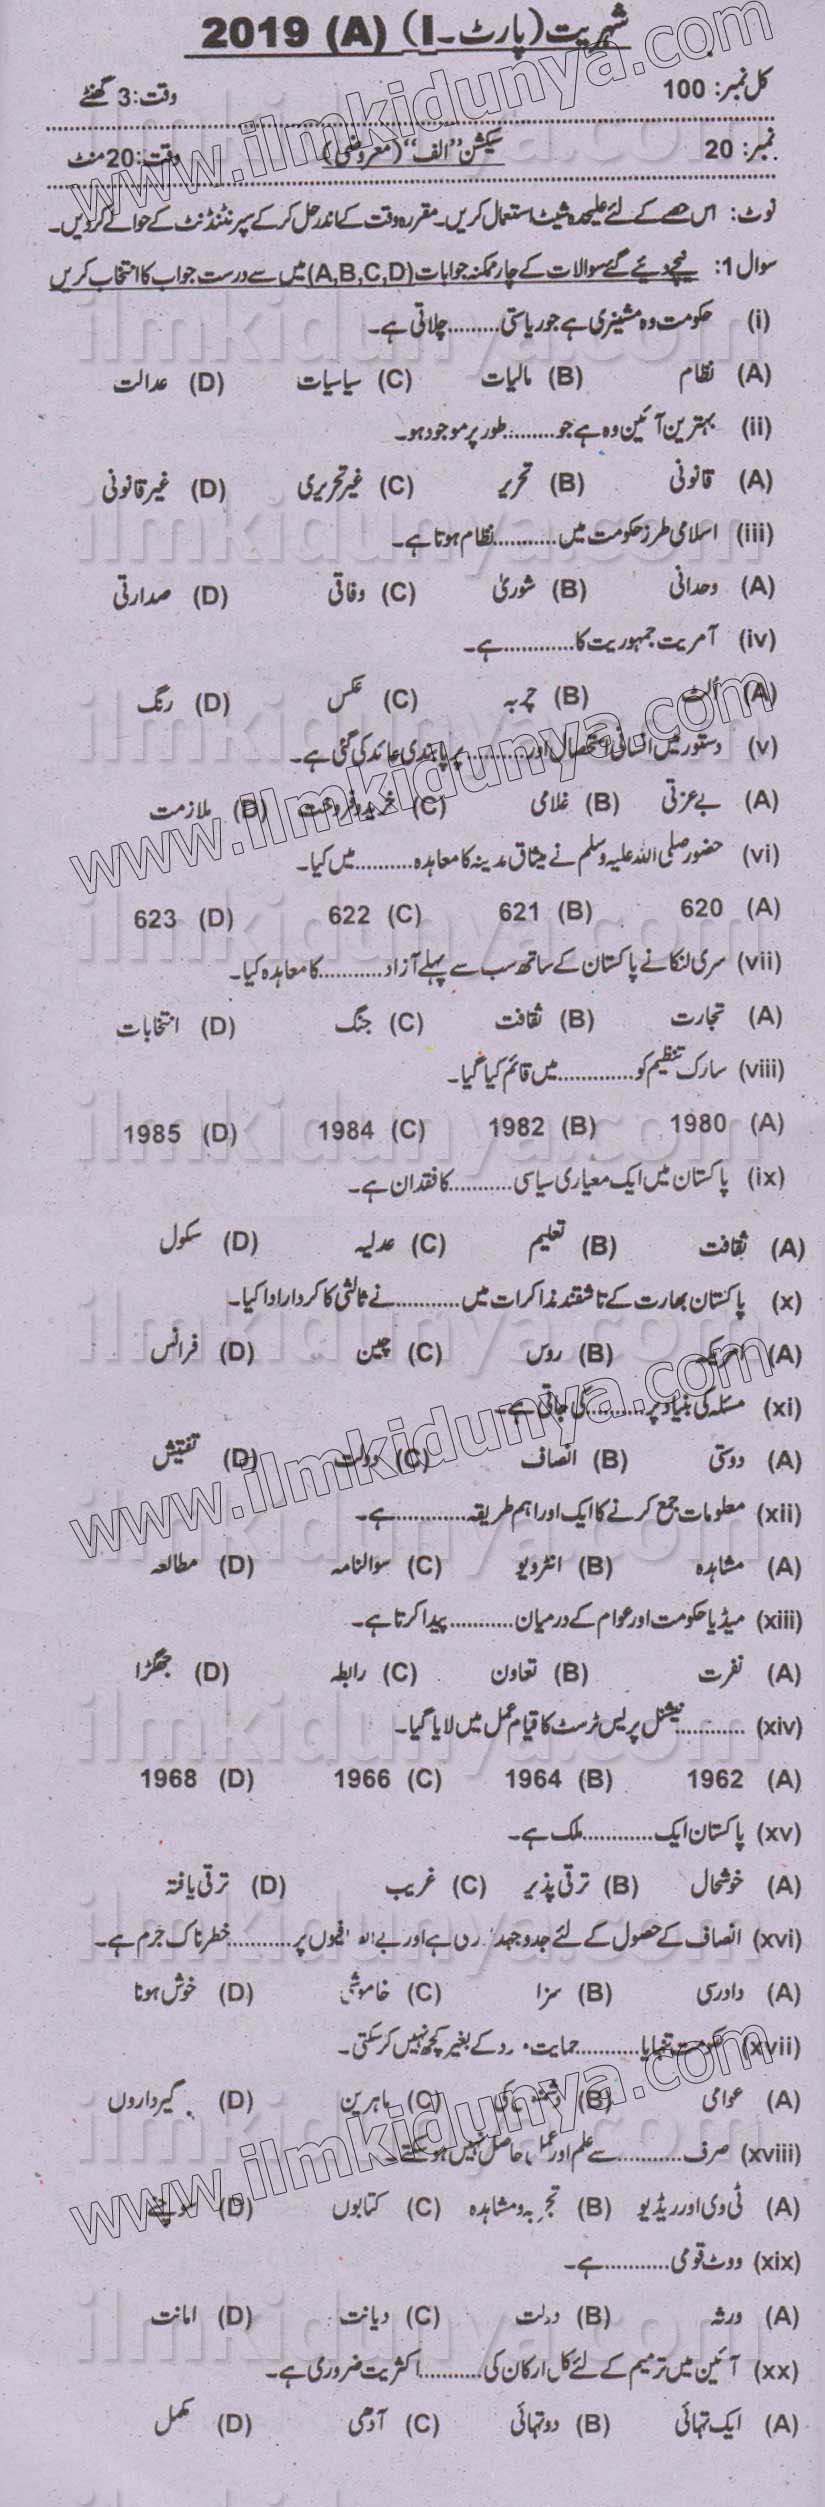 شہریت (پارٹ۔I) (A) 2019
کل نمبر: 100 وقت: 3 گھنٹے
نمبر: 20 سیکشن "الف" (معروضی) وقت: 20 منٹ
نوٹ: اس حصے کے لئے علیحدہ شیٹ استعمال کریں۔ مقررہ وقت کے اندر حل کر کے سپرنٹنڈنٹ کے حوالے کر دیں۔
سوال 1: نیچے دیئے گئے سوالات کے چار ممکنہ جوابات (A,B,C,D) میں سے درست جواب کا انتخاب کریں
(i) حکومت وہ مشینری ہے جو ریاستی ......... چلاتی ہے۔
(A) نظام (B) مالیات (C) سیاسیات (D) عدالت
(ii) بہترین آئین وہ ہے جو ......... طور پر موجود ہو۔
(A) قانونی (B) تحریر (C) غیر تحریری (D) غیر قانونی
(iii) اسلامی طرز حکومت میں ........... نظام ہوتا ہے۔
(A) وحدانی (B) شوریٰ (C) وفاقی (D) صدارتی
(iv) آمریت جمہوریت کا ............ ہے۔
(A) الٹ (B) چربہ (C) عکس (D) رنگ
(v) دستور میں انسانی استحصال اور .......... پر پابندی عائد کی گئی ہے۔
(A) بے عزتی (B) غلامی (C) خرید و فروخت (D) ملازمت
(vi) حضور صلی اللہ علیہ وسلم نے میثاق مدینہ کا معاہدہ .......... میں کیا۔
(A) 620 (B) 621 (C) 622 (D) 623
(vii) سری لنکا نے پاکستان کے ساتھ سب سے پہلے آزاد ........... کا معاہدہ کیا۔
(A) تجارت (B) ثقافت (C) جنگ (D) انتخابات
(viii) سارک تنظیم کو ............. میں قائم کیا گیا۔
(A) 1980 (B) 1982 (C) 1984 (D) 1985
(ix) پاکستان میں ایک معیاری سیاسی ........... کا فقدان ہے۔
(A) ثقافت (B) تعلیم (C) عدلیہ (D) سکول
(x) پاکستان بھارت کے تاشقند مذاکرات میں ........... نے ثالثی کا کردار ادا کیا۔
(A) امریکہ (B) روس (C) چین (D) فرانس
(xi) مسئلہ کی بنیاد پر .......... کی جاتی ہے۔
(A) دوستی (B) انصاف (C) دولت (D) تفتیش
(xii) معلومات جمع کرنے کا ایک اور اہم طریقہ ............ ہے۔
(A) مشاہدہ (B) انٹرویو (C) سوالنامہ (D) مطالعہ
(xiii) میڈیا حکومت اور عوام کے درمیان ........... پیدا کرتا ہے۔
(A) نفرت (B) تعاون (C) رابطہ (D) جھگڑا
(xiv) ............ نیشنل پریس ٹرسٹ کا قیام عمل میں لایا گیا۔
(A) 1962 (B) 1964 (C) 1966 (D) 1968
(xv) پاکستان ایک ............ ملک ہے۔
(A) خوشحال (B) ترقی پذیر (C) غریب (D) ترقی یافتہ
(xvi) انصاف کے حصول کے لئے جدوجہد ہے اور پر ........... خطرناک جرم ہے۔
(A) دادرسی (B) سزا (C) خاموشی (D) خوش ہونا
(xvii) حکومت تنہا یا .......... حمایت کے بغیر کچھ نہیں کر سکتی۔
(A) عوامی (B) دشمنوں کی (C) ماہرین (D) جاگیرداروں
(xviii) صرف ........... سے علم اور عمل حاصل نہیں ہو سکتے۔
(A) ٹی وی اور ریڈیو (B) تجربہ و مشاہدہ (C) کتابوں (D)
(xix) ووٹ قومی ........... ہے۔
(A) ورثہ (B) دولت (C) دیانت (D) امانت
(xx) آئین میں ترمیم کے لئے کل ارکان کی .......... اکثریت ضروری ہے۔
(A) ایک تہائی (B) دو تہائی (C) آدھی (D) مکمل
www.ilmkidunya.com
www.ilmkidunya.com
www.ilmkidunya.com
www.ilmkidunya.com